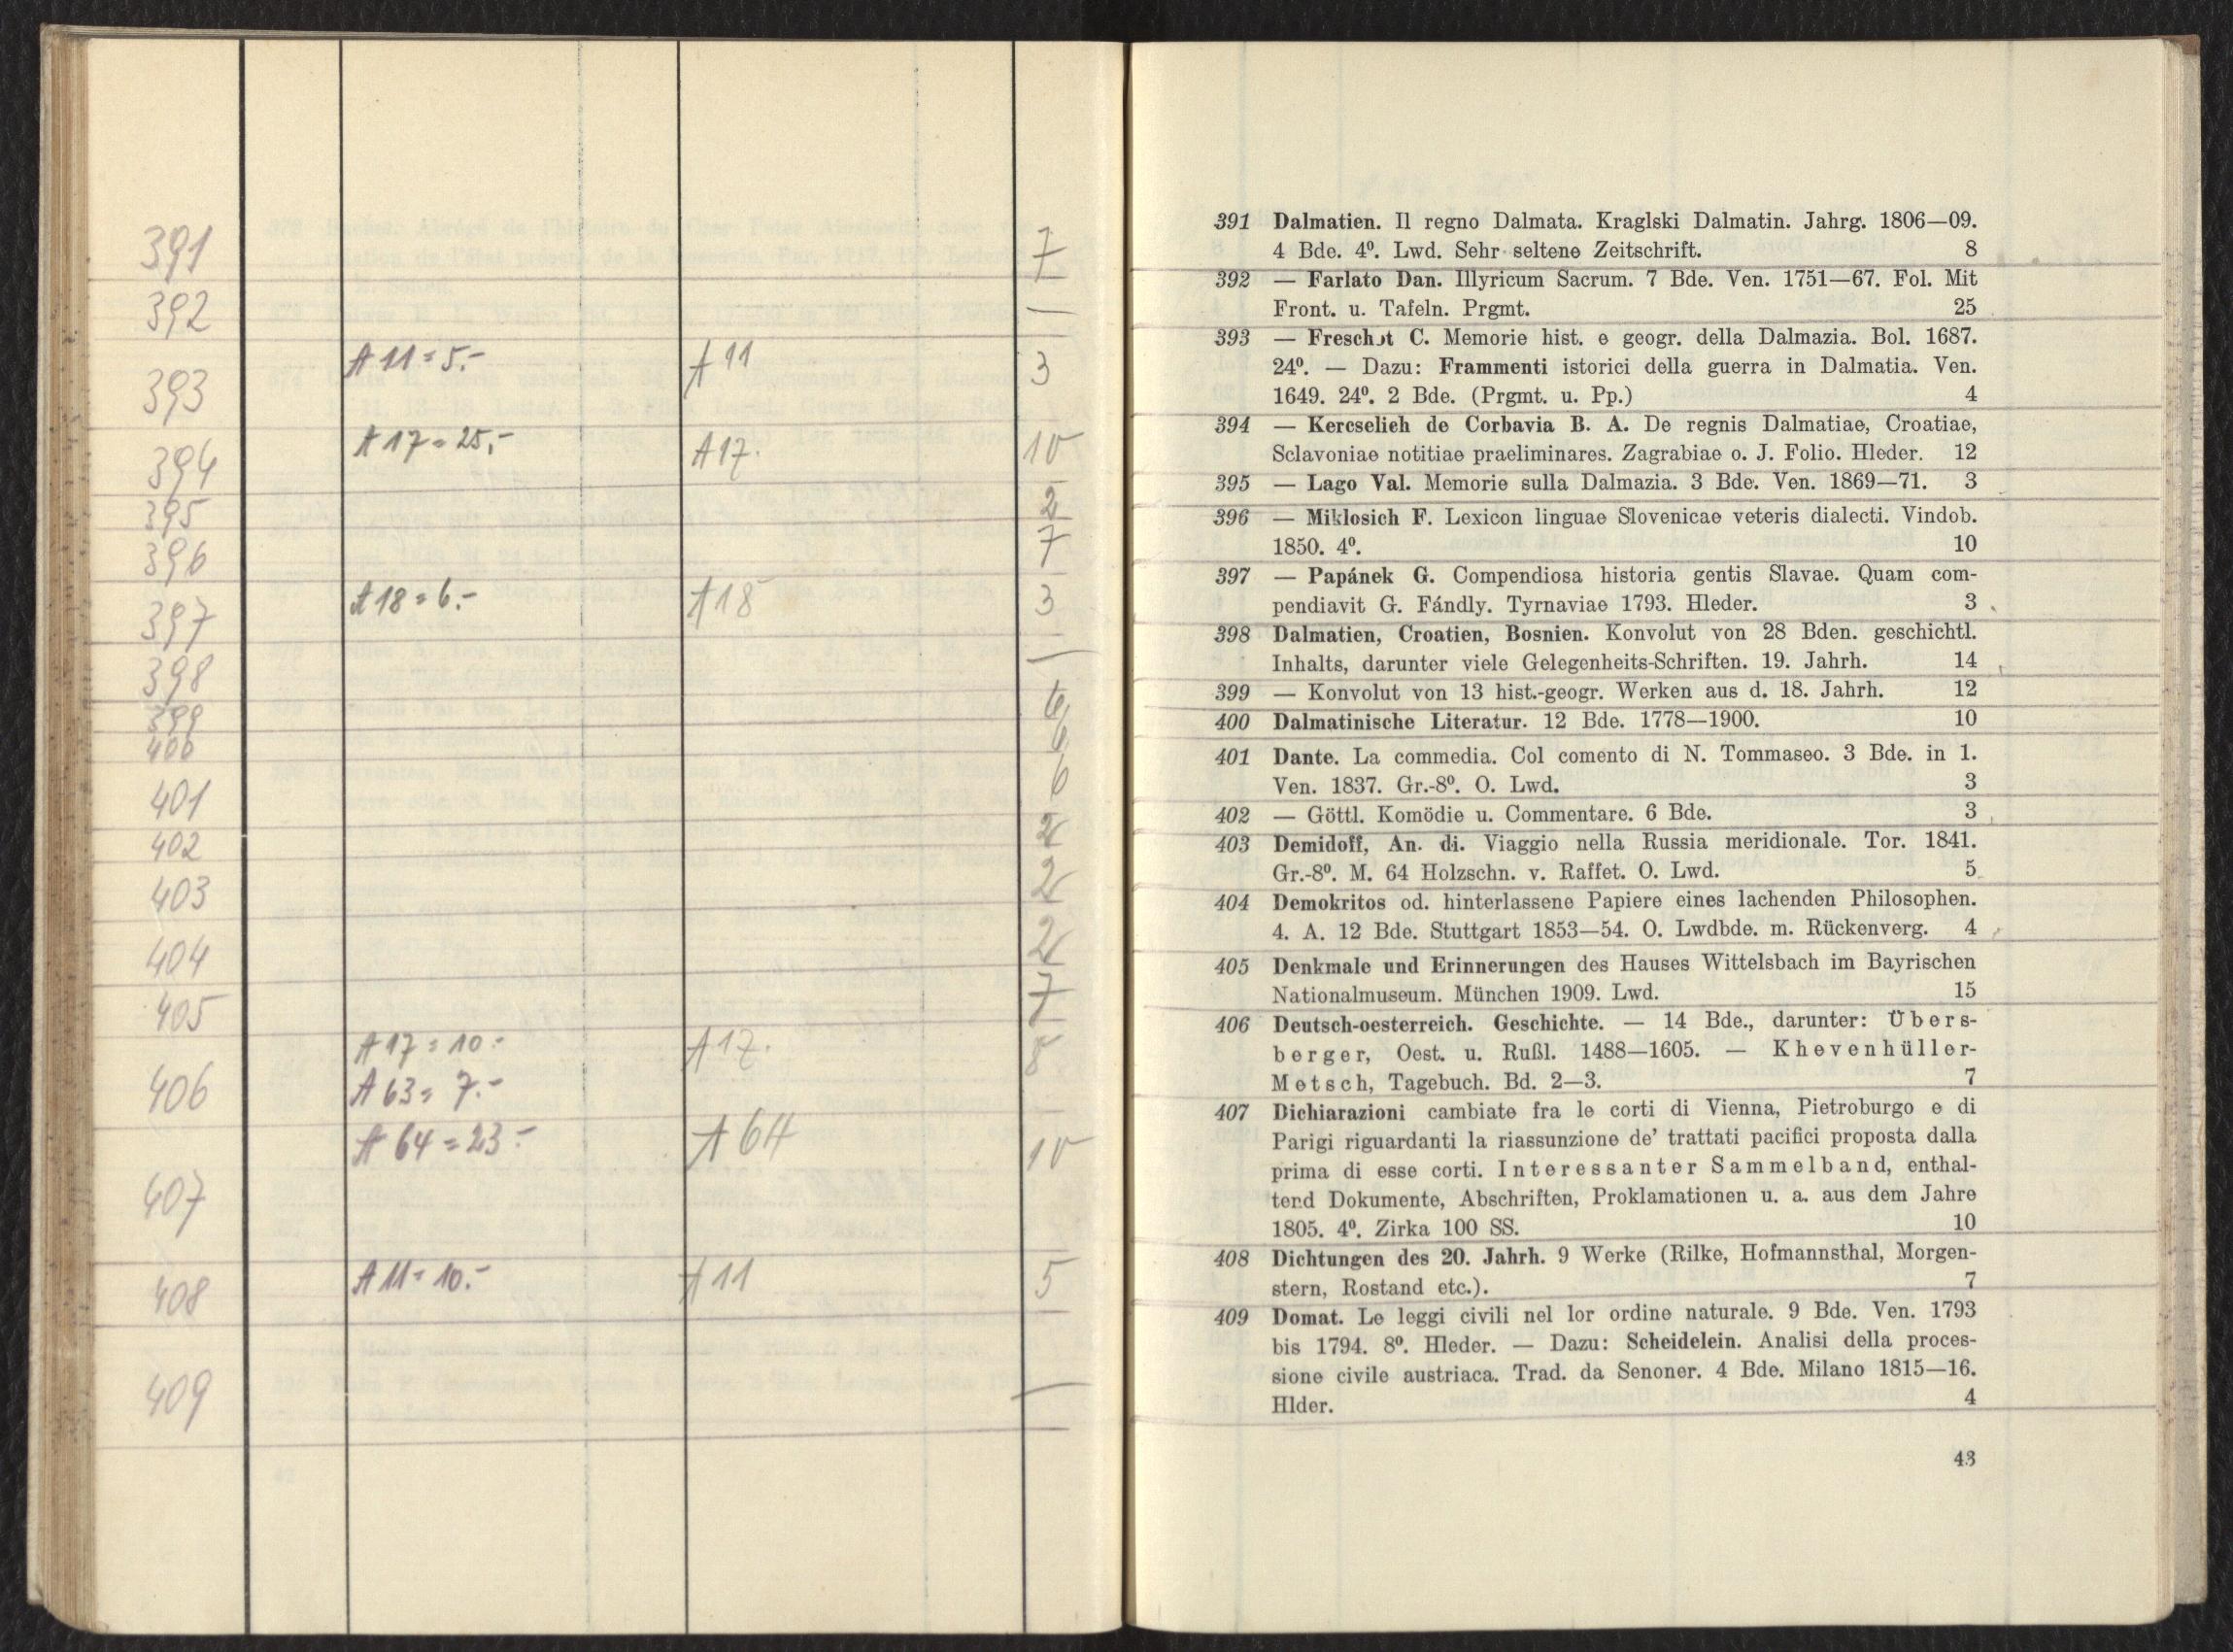 391 7
392 —
A 11 = 5.- A 11
393 3
A 17 = 25,- A 17.
394 10
395 2
396 7
397 A 18 = 6.- A 18 3
398 —
399 6
400 6
401 6
402 2
403 2
404 2
405 7
A 17 = 10.- A 17. 8
406 A 63 = 7.-
A 64 = 23.- A 64 10
407
408 A 11 = 10.- A 11 5
409 —
391 Dalmatien. Il regno Dalmata. Kraglski Dalmatin. Jahrg. 1806—09.
4 Bde. 4⁰. Lwd. Sehr seltene Zeitschrift. 8
392 — Farlato Dan. Illyricum Sacrum. 7 Bde. Ven. 1751—67. Fol. Mit
Front. u. Tafeln. Prgmt. 25
393 — Freschot C. Memorie hist. e geogr. della Dalmazia. Bol. 1687.
24⁰. — Dazu: Frammenti istorici della guerra in Dalmatia. Ven.
1649. 24⁰. 2 Bde. (Prgmt. u. Pp.) 4
394 — Kercselich de Corbavia B. A. De regnis Dalmatiae, Croatiae,
Sclavoniae notitiae praeliminares. Zagrabiae o. J. Folio. Hleder. 12
395 — Lago Val. Memorie sulla Dalmazia. 3 Bde. Ven. 1869—71. 3
396 — Miklosich F. Lexicon linguae Slovenicae veteris dialecti. Vindob.
1850. 4⁰. 10
397 — Papánek G. Compendiosa historia gentis Slavae. Quam com-
pendiavit G. Fándly. Tyrnaviae 1793. Hleder. 3
398 Dalmatien, Croatien, Bosnien. Konvolut von 28 Bden. geschichtl.
Inhalts, darunter viele Gelegenheits-Schriften. 19. Jahrh. 14
399 — Konvolut von 13 hist.-geogr. Werken aus d. 18. Jahrh. 12
400 Dalmatinische Literatur. 12 Bde. 1778—1900. 10
401 Dante. La commedia. Col comento di N. Tommaseo. 3 Bde. in 1.
Ven. 1837. Gr.-8⁰. O. Lwd. 3
402 — Göttl. Komödie u. Commentare. 6 Bde. 3
403 Demidoff, An. di. Viaggio nella Russia meridionale. Tor. 1841.
Gr.-8⁰. M. 64 Holzschn. v. Raffet. O. Lwd. 5
404 Demokritos od. hinterlassene Papiere eines lachenden Philosophen.
4. A. 12 Bde. Stuttgart 1853—54. O. Lwdbde. m. Rückenverg. 4
405 Denkmale und Erinnerungen des Hauses Wittelsbach im Bayrischen
Nationalmuseum. München 1909. Lwd. 15
406 Deutsch-oesterreich. Geschichte. — 14 Bde., darunter: Übers-
berger, Oest. u. Rußl. 1488—1605. — Khevenhüller-
Metsch, Tagebuch. Bd. 2—3. 7
407 Dichiarazioni cambiate fra le corti di Vienna, Pietroburgo e di
Parigi riguardanti la riassunzione de' trattati pacifici proposta dalla
prima di esse corti. Interessanter Sammelband, enthal-
tend Dokumente, Abschriften, Proklamationen u. a. aus dem Jahre
1805. 4⁰. Zirka 100 SS. 10
408 Dichtungen des 20. Jahrh. 9 Werke (Rilke, Hofmannsthal, Morgen-
stern, Rostand etc.). 7
409 Domat. Le leggi civili nel lor ordine naturale. 9 Bde. Ven. 1793
bis 1794. 8⁰. Hleder. — Dazu: Scheidelein. Analisi della proces-
sione civile austriaca. Trad. da Senoner. 4 Bde. Milano 1815—16.
Hlder. 4
43